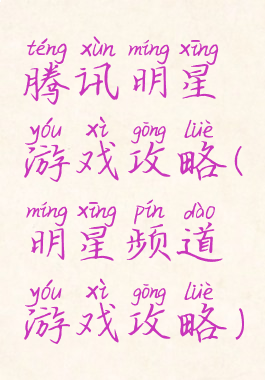 téng xùn míng xīng
腾讯明星
yóu xì gōng lüè
游戏攻略(
míng xīng pín dào
明星频道
yóu xì gōng lüè
游戏攻略)